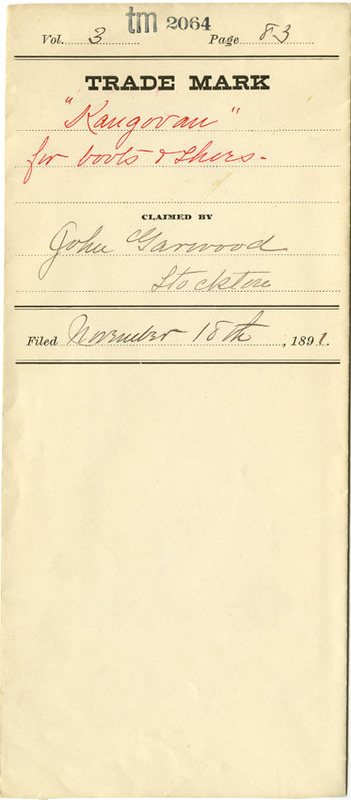 tm 2064
Vol. 3 Page 83
TRADE MARK
"Kangovan"
for boots & shoes.
CLAIMED BY
John Garwood
Stockton
Filed November 18th, 1891.